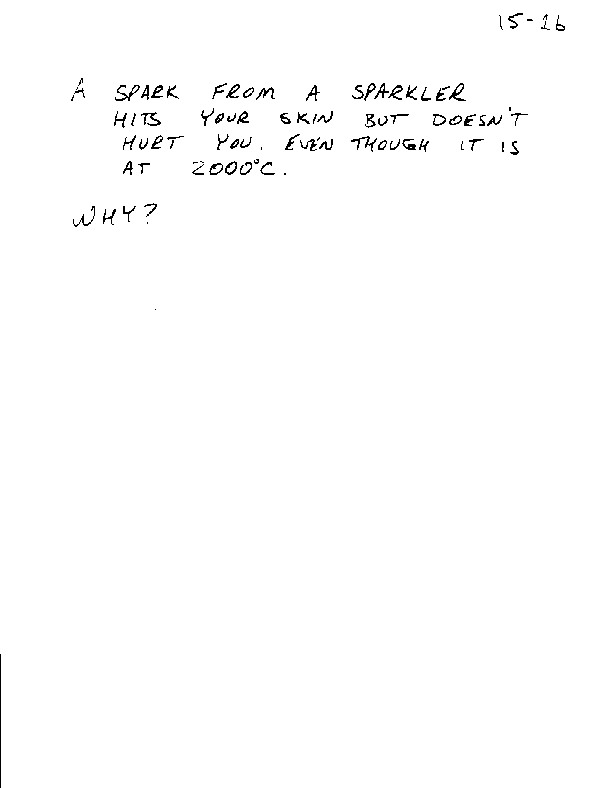 15-16
A SPARK FROM A SPARKLER
HITS YOUR SKIN BUT DOESN'T
HURT YOU. EVEN THOUGH IT IS
AT 2000°C.
WHY?